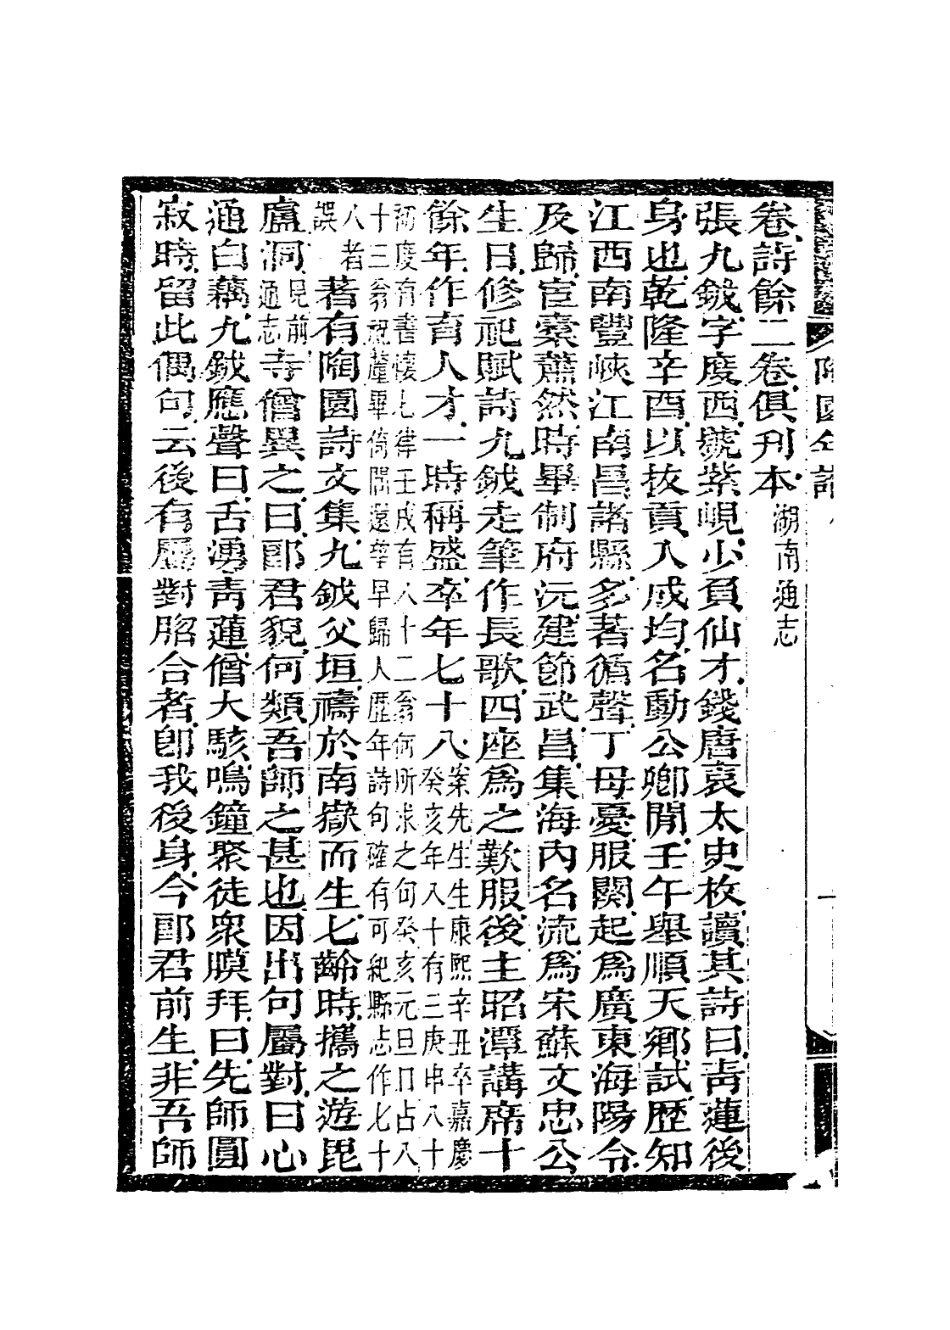 陶園年譜
卷詩餘二卷俱刊本湖南通志
張九鉞字度西號紫峴少負仙才錢唐袁太史枚讀其詩曰靑蓮後
身也乾隆辛酉以拔貢入成均名動公卿閒壬午舉順天鄉試歷知
江西南豐峽江南昌諸縣多著循聲丁母憂服闋起爲廣東海陽令
及歸宦橐蕭然時畢制府沅建節武昌集海內名流爲宋蘇文忠公
生日修祀賦詩九鉞走筆作長歌四座爲之歎服後主昭潭講席十
餘年作育人才一時稱盛卒年七十八案先生生康熙辛丑卒嘉慶
癸亥年八十有三庚申八十
初度有書懷七律壬戌有八十二翁何所求之句癸亥元旦口占八
十三翁祝釐畢倚閭還幸早歸人歷年詩句確有可紀縣志作七十
八者
誤
著有陶園詩文集九鉞父垣禱於南嶽而生七齡時攜之遊毘
盧洞見前通志寺僧異之曰郎君貌何類吾師之甚也因出句屬對曰心
通白藕九鉞應聲曰舌湧靑蓮僧大駭鳴鐘聚徒衆膜拜曰先師圓
寂時留此偶句云後有屬對脗合者卽我後身今郎君前生非吾師